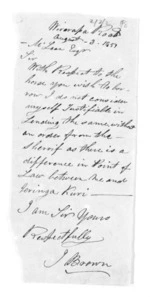 Wirarapa Road
August - 3 - 1857
- McLean Esqr
Sir
With Respect to the
horse you wish to bor-
row I do not consider
myself Justifiable in
Lending the same without
an order from the -
Sherrif as there is a
difference in Point of
Law between me and
Goringa Kuri -
I am Sir Yours
Respectfully
J Brown